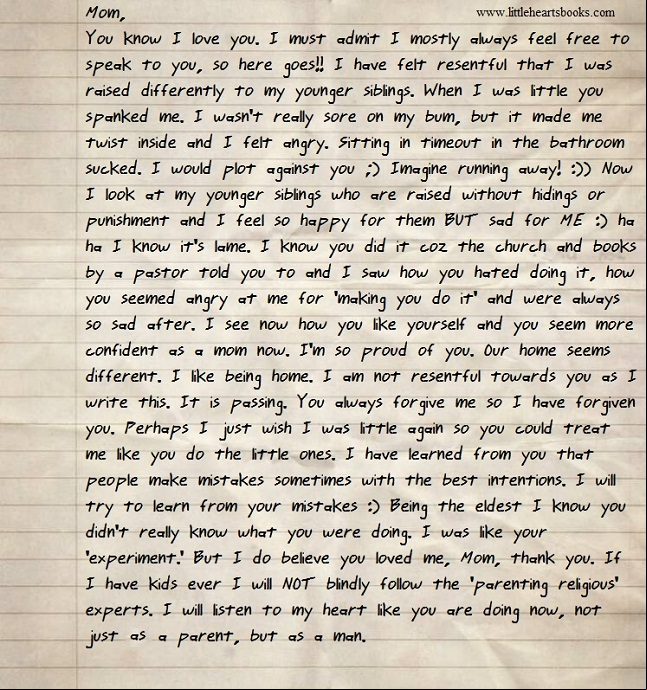 Mom, www.littleheartsbooks.com
You know I love you. I must admit I mostly always feel free to
speak to you, so here goes!! I have felt resentful that I was
raised differently to my younger siblings. When I was little you
spanked me. I wasn't really sore on my bum, but it made me
twist inside and I felt angry. Sitting in timeout in the bathroom
sucked. I would plot against you ;) Imagine running away! :)) Now
I look at my younger siblings who are raised without hidings or
punishment and I feel so happy for them BUT sad for ME :) ha
ha I know it's lame. I know you did it coz the church and books
by a pastor told you to and I saw how you hated doing it, how
you seemed angry at me for 'making you do it' and were always
so sad after. I see now how you like yourself and you seem more
confident as a mom now. I'm so proud of you. Our home seems
different. I like being home. I am not resentful towards you as I
write this. It is passing. You always forgive me so I have forgiven
you. Perhaps I just wish I was little again so you could treat
me like you do the little ones. I have learned from you that
people make mistakes sometimes with the best intentions. I will
try to learn from your mistakes :) Being the eldest I know you
didn't really know what you were doing. I was like your
'experiment.' But I do believe you loved me, Mom, thank you. If
I have kids ever I will NOT blindly follow the 'parenting religious'
experts. I will listen to my heart like you are doing now, not
just as a parent, but as a man.